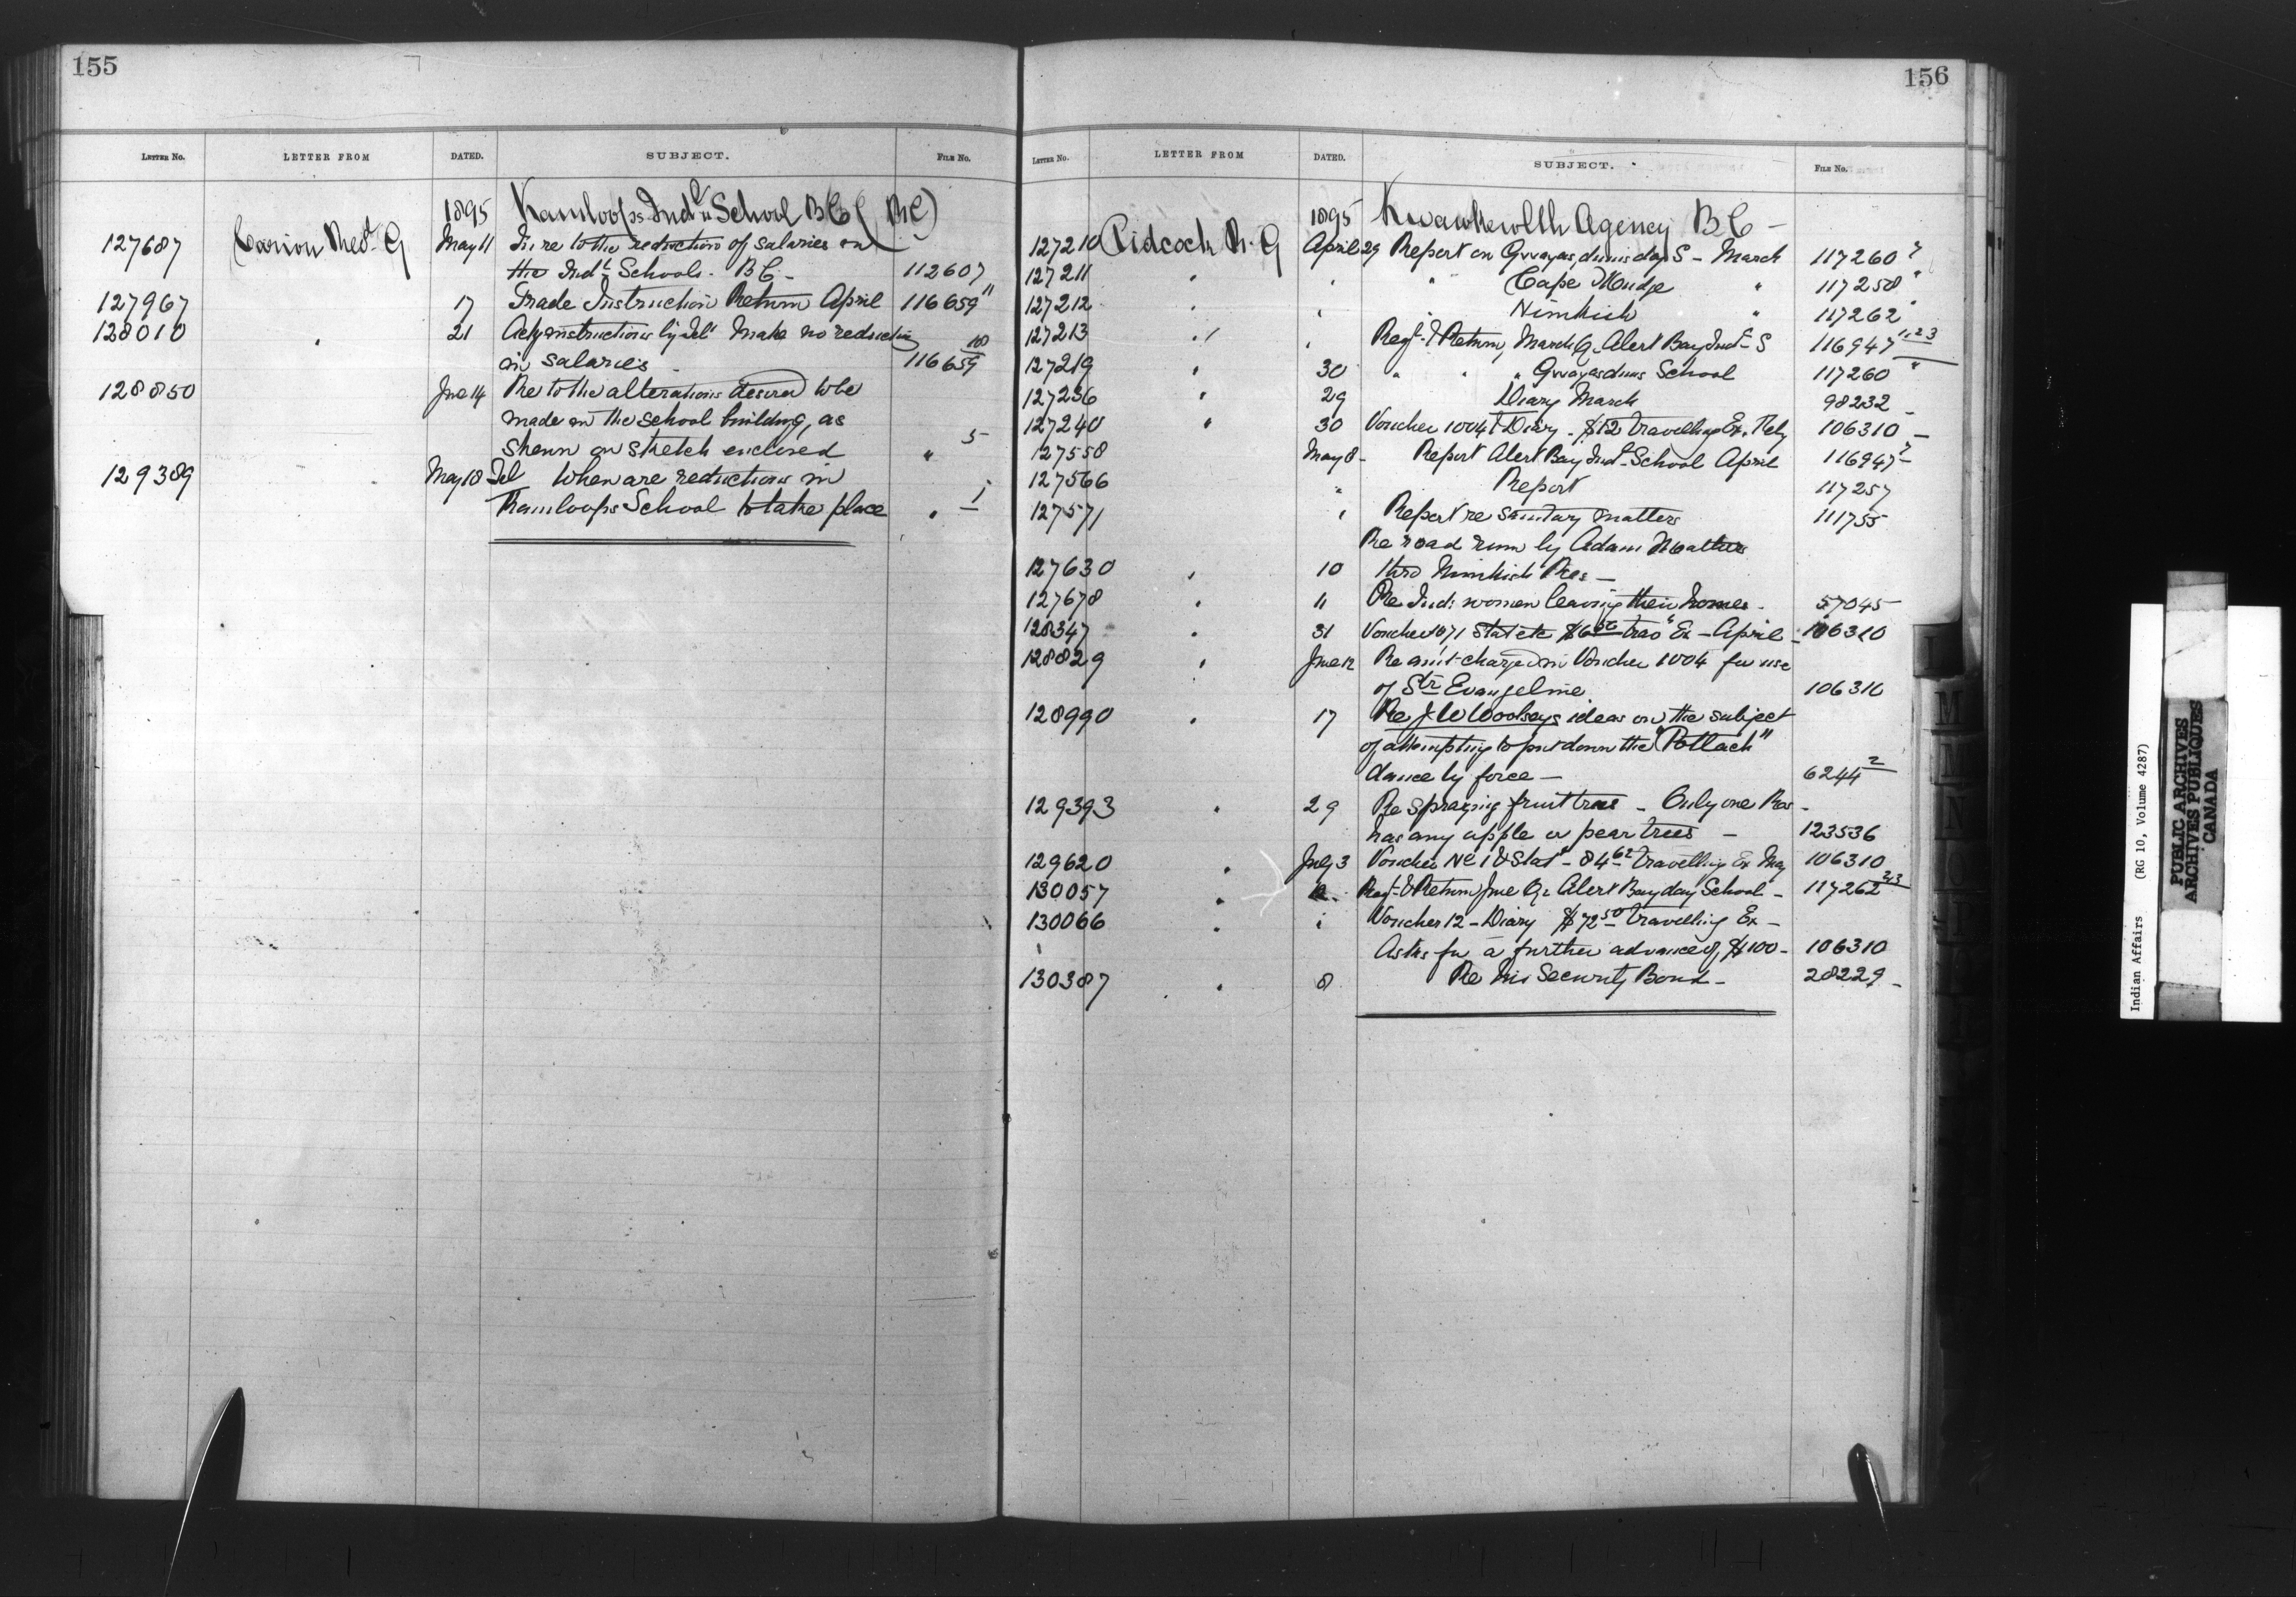 155
LETTER No. LETTER FROM DATED. SUBJECT. FILE No.
1895 Kamloops Indl School BC (RC)
127687 Carion Revd G May 11 In re to the reduction of salaries in
the Indl Schools. BC - 112607
127967 17 Trade Instruction Return April 116659 11
128010 " 21 Ackg instructions by Tel Make no reduction
in salaries 116659 10
128850 June 14 Re to the alterations desired to be
made on the school building, as
shewn on sketch enclosed " 5
129389 May 18 Tel When are reductions in
Kamloops School to take place " 1
156
LETTER No. LETTER FROM DATED. SUBJECT. FILE No.
1895 Kwawkewlth Agency BC -
127210 Pidcock R. G April 29 Report on Gwayasdums day S - March 117260
127211 " " " Cape Mudge " 117258 "
127212 " " Nimkish " 117262 "
127213 " " Regr & Return, March Qr Alert Bay Indl S 116947 1.2.3
127219 " 30 " " " Gwayasdums School 117260 "
127236 " 29 Diary March 98232 -
127240 " 30 Voucher 1004 & Diary - $12 travelling Ex. 106310 -
127558 May 8 - Report Alert Bay Indl School April 116947 -
127566 " Report 117257
127571 " Report re sanitary matters 111755
Re road run by Adam
127630 " 10 thro Nimkish Res -
127678 " 11 Re Ind: women leaving their homes - 57045
128347 " 31 Voucher 1071 Stat etc trav Ex - April - 106310
128829 " June 12 Re amt charged in Voucher 1004 for use
of Str Evangeline 106310
128990 " 17 Re J W Woolseys ideas on the subject
of attempting to put down the "Potlach"
dance by force - 6244 2
129393 " 29 Re spraying fruit trees - Only one Res -
has any apple or pear trees - 123536
129620 " July 3 Voucher No 1 & Stat - 84 62 travelling Ex May 106310
130057 " Regr & Return June Qr Alert Bay day School - 117262 2/3
130066 " " Voucher 12 - Diary $72 50 travelling Ex -
Asks for a further advance of $100 - 106310
130387 " 8 Re his Security Bond - 28229 -
L
M
N
Indian Affairs (RG 10, Volume 4287)
PUBLIC ARCHIVES
ARCHIVES PUBLIQUES
CANADA